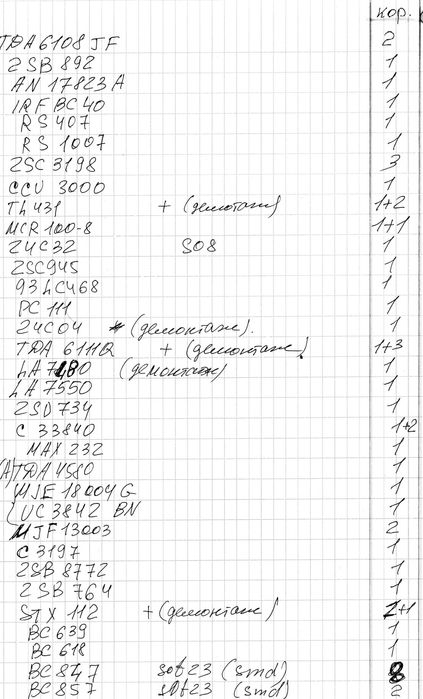 кор.
TDA6108JF 2
2SB892 1
AN17823A 1
IRFBC40 1
RS407 1
RS1007 1
2SC3198 3
CCU 3000 1
TL431 + (демонтаж) 1+2
MCR100-8 1+1
24C32 SO8 1
2SC945 1
93LC468 1
PC111 1
24C04 * (демонтаж). 1
TDA 6111Q + (демонтаж) 1+3
LA7480 (демонтаж) 1
LA7550 1
2SD734 1
C 33840 1+2
MAX 232 1
(A)TDA4580 1
MJE18004G 1
(UC3842 BN 1
MJF13003 2
C3197 1
2SB8772 1
2SB764 1
STX112 +(демонтаж) 1+1
BC639 1
BC618 1
BC847 sot23 (smd) 8
BC857 sot23 (smd) 2